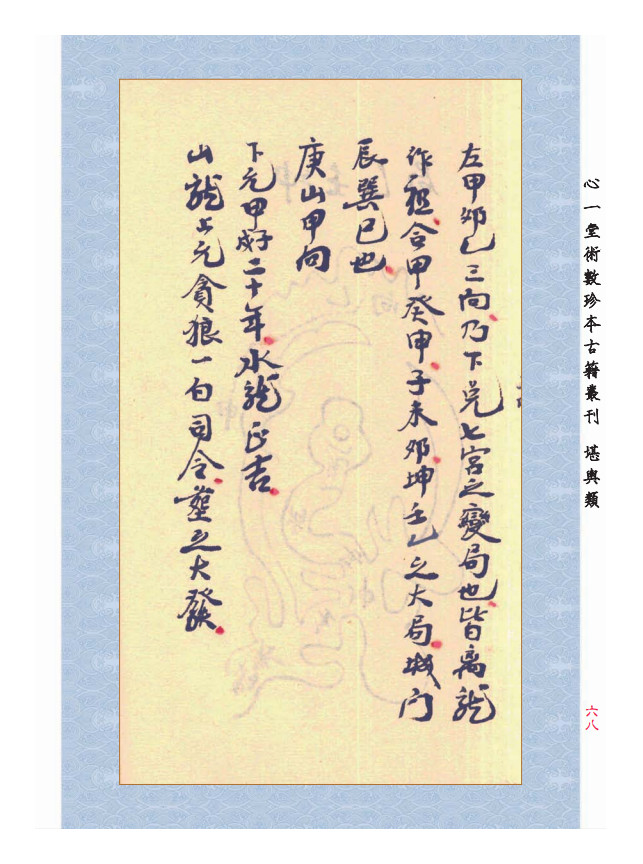 心一堂術數珍本古籍叢刊 堪輿類
左甲夘乙三向乃下兑七宮之變局也皆离龍
作祖合甲癸申子未夘坤壬乙之大局城门
辰巽巳也
庚山甲向
下元甲戌子二十年水龍正吉
山龍上元貪狼一白司令塟之大發
六八